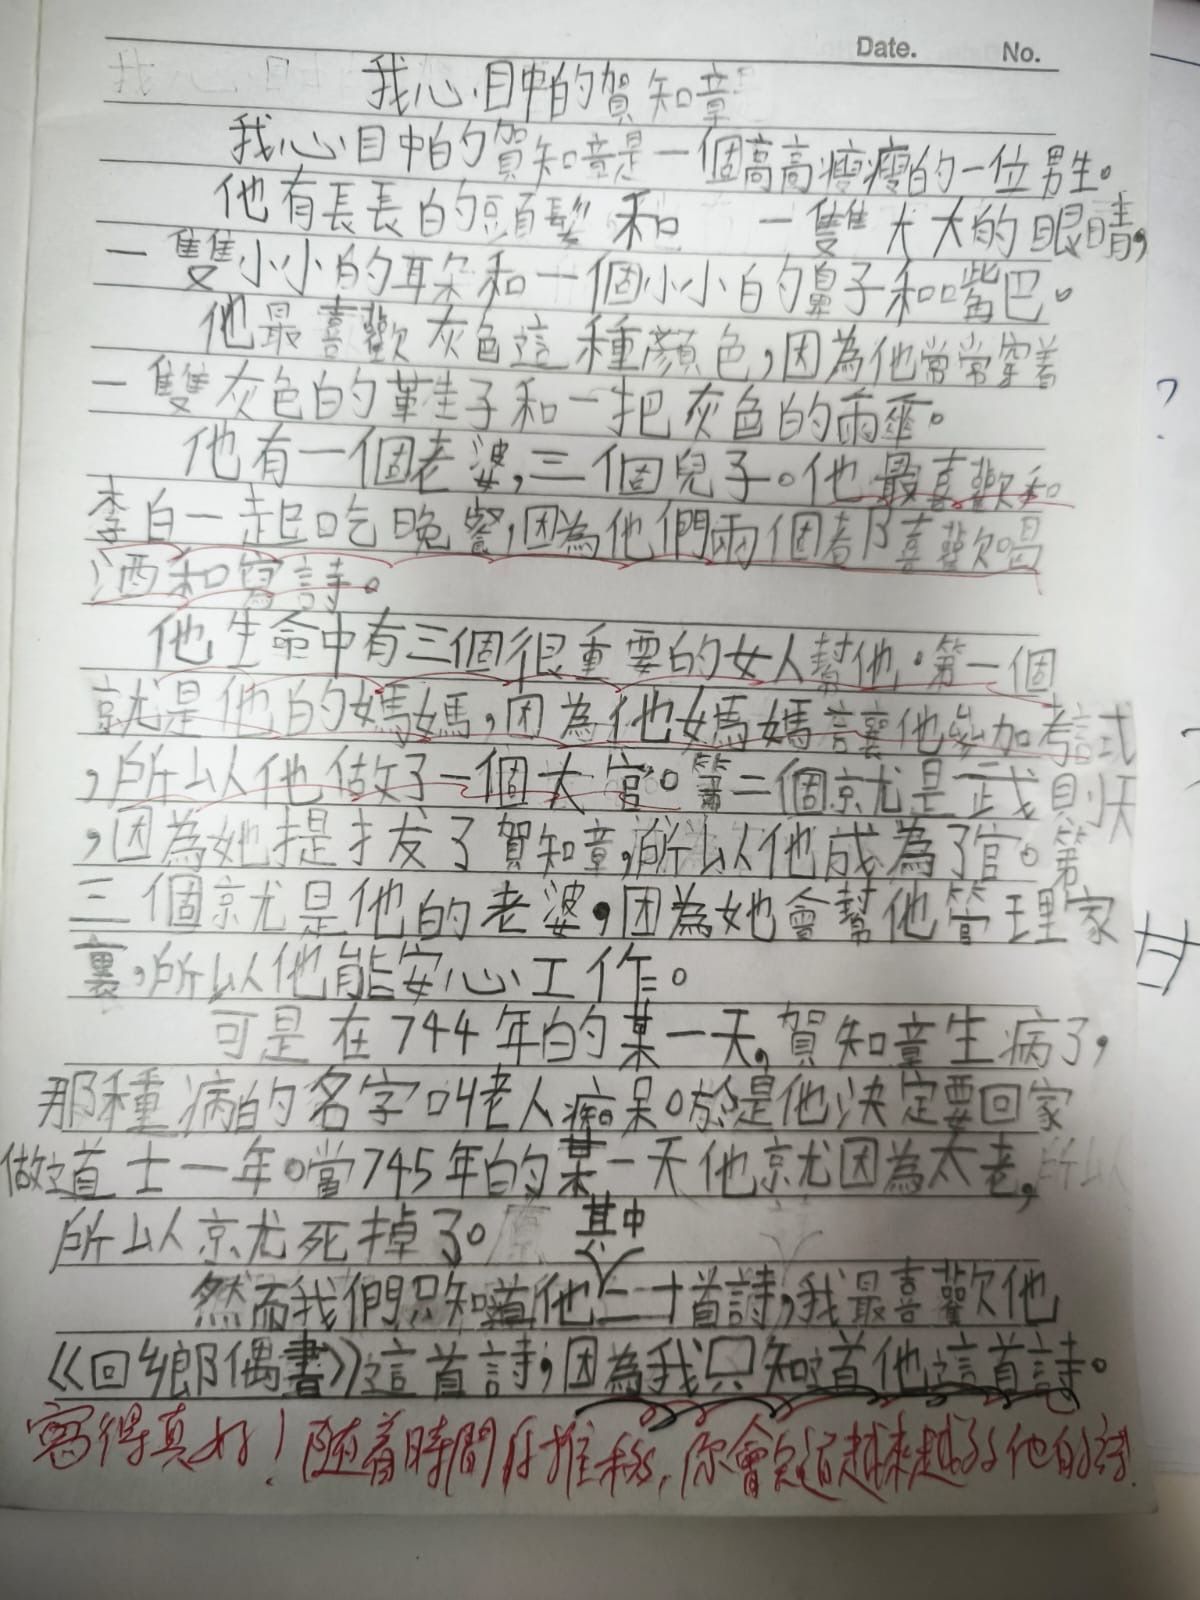 Date. No.
我心目中的賀知章
我心目中的賀知章是一個高高瘦瘦的一位男生。
他有長長的頭髮和 一雙大大的眼睛，
一雙小小的耳朵和一個小小的鼻子和嘴巴。
他最喜歡灰色這種顏色，因為他常常穿着
一雙灰色的鞋子和一把灰色的雨傘。
他有一個老婆，三個兒子。他最喜歡和
李白一起吃晚餐，因為他們兩個都喜歡喝
酒和寫詩。
他生命中有三個很重要的女人幫他。第一個
就是他的媽媽，因為他媽媽讓他參加考試
，所以他做了一個大官。第二個就是武則天
，因為她提拔了賀知章，所以他成為了官。第
三個就是他的老婆，因為她會幫他管理家
裏，所以他能安心工作。
可是在744年的某一天，賀知章生病了，
那種病的名字叫老人痴呆。於是他決定要回家
做道士一年。當745年的某一天他就因為太老，所以
所以就死掉了。
其中
然而我們只知道他二十首詩，我最喜歡他
《回鄉偶書》這首詩，因為我只知道他這首詩。
寫得真好！隨着時間的推移，你會知道越來越多他的詩！